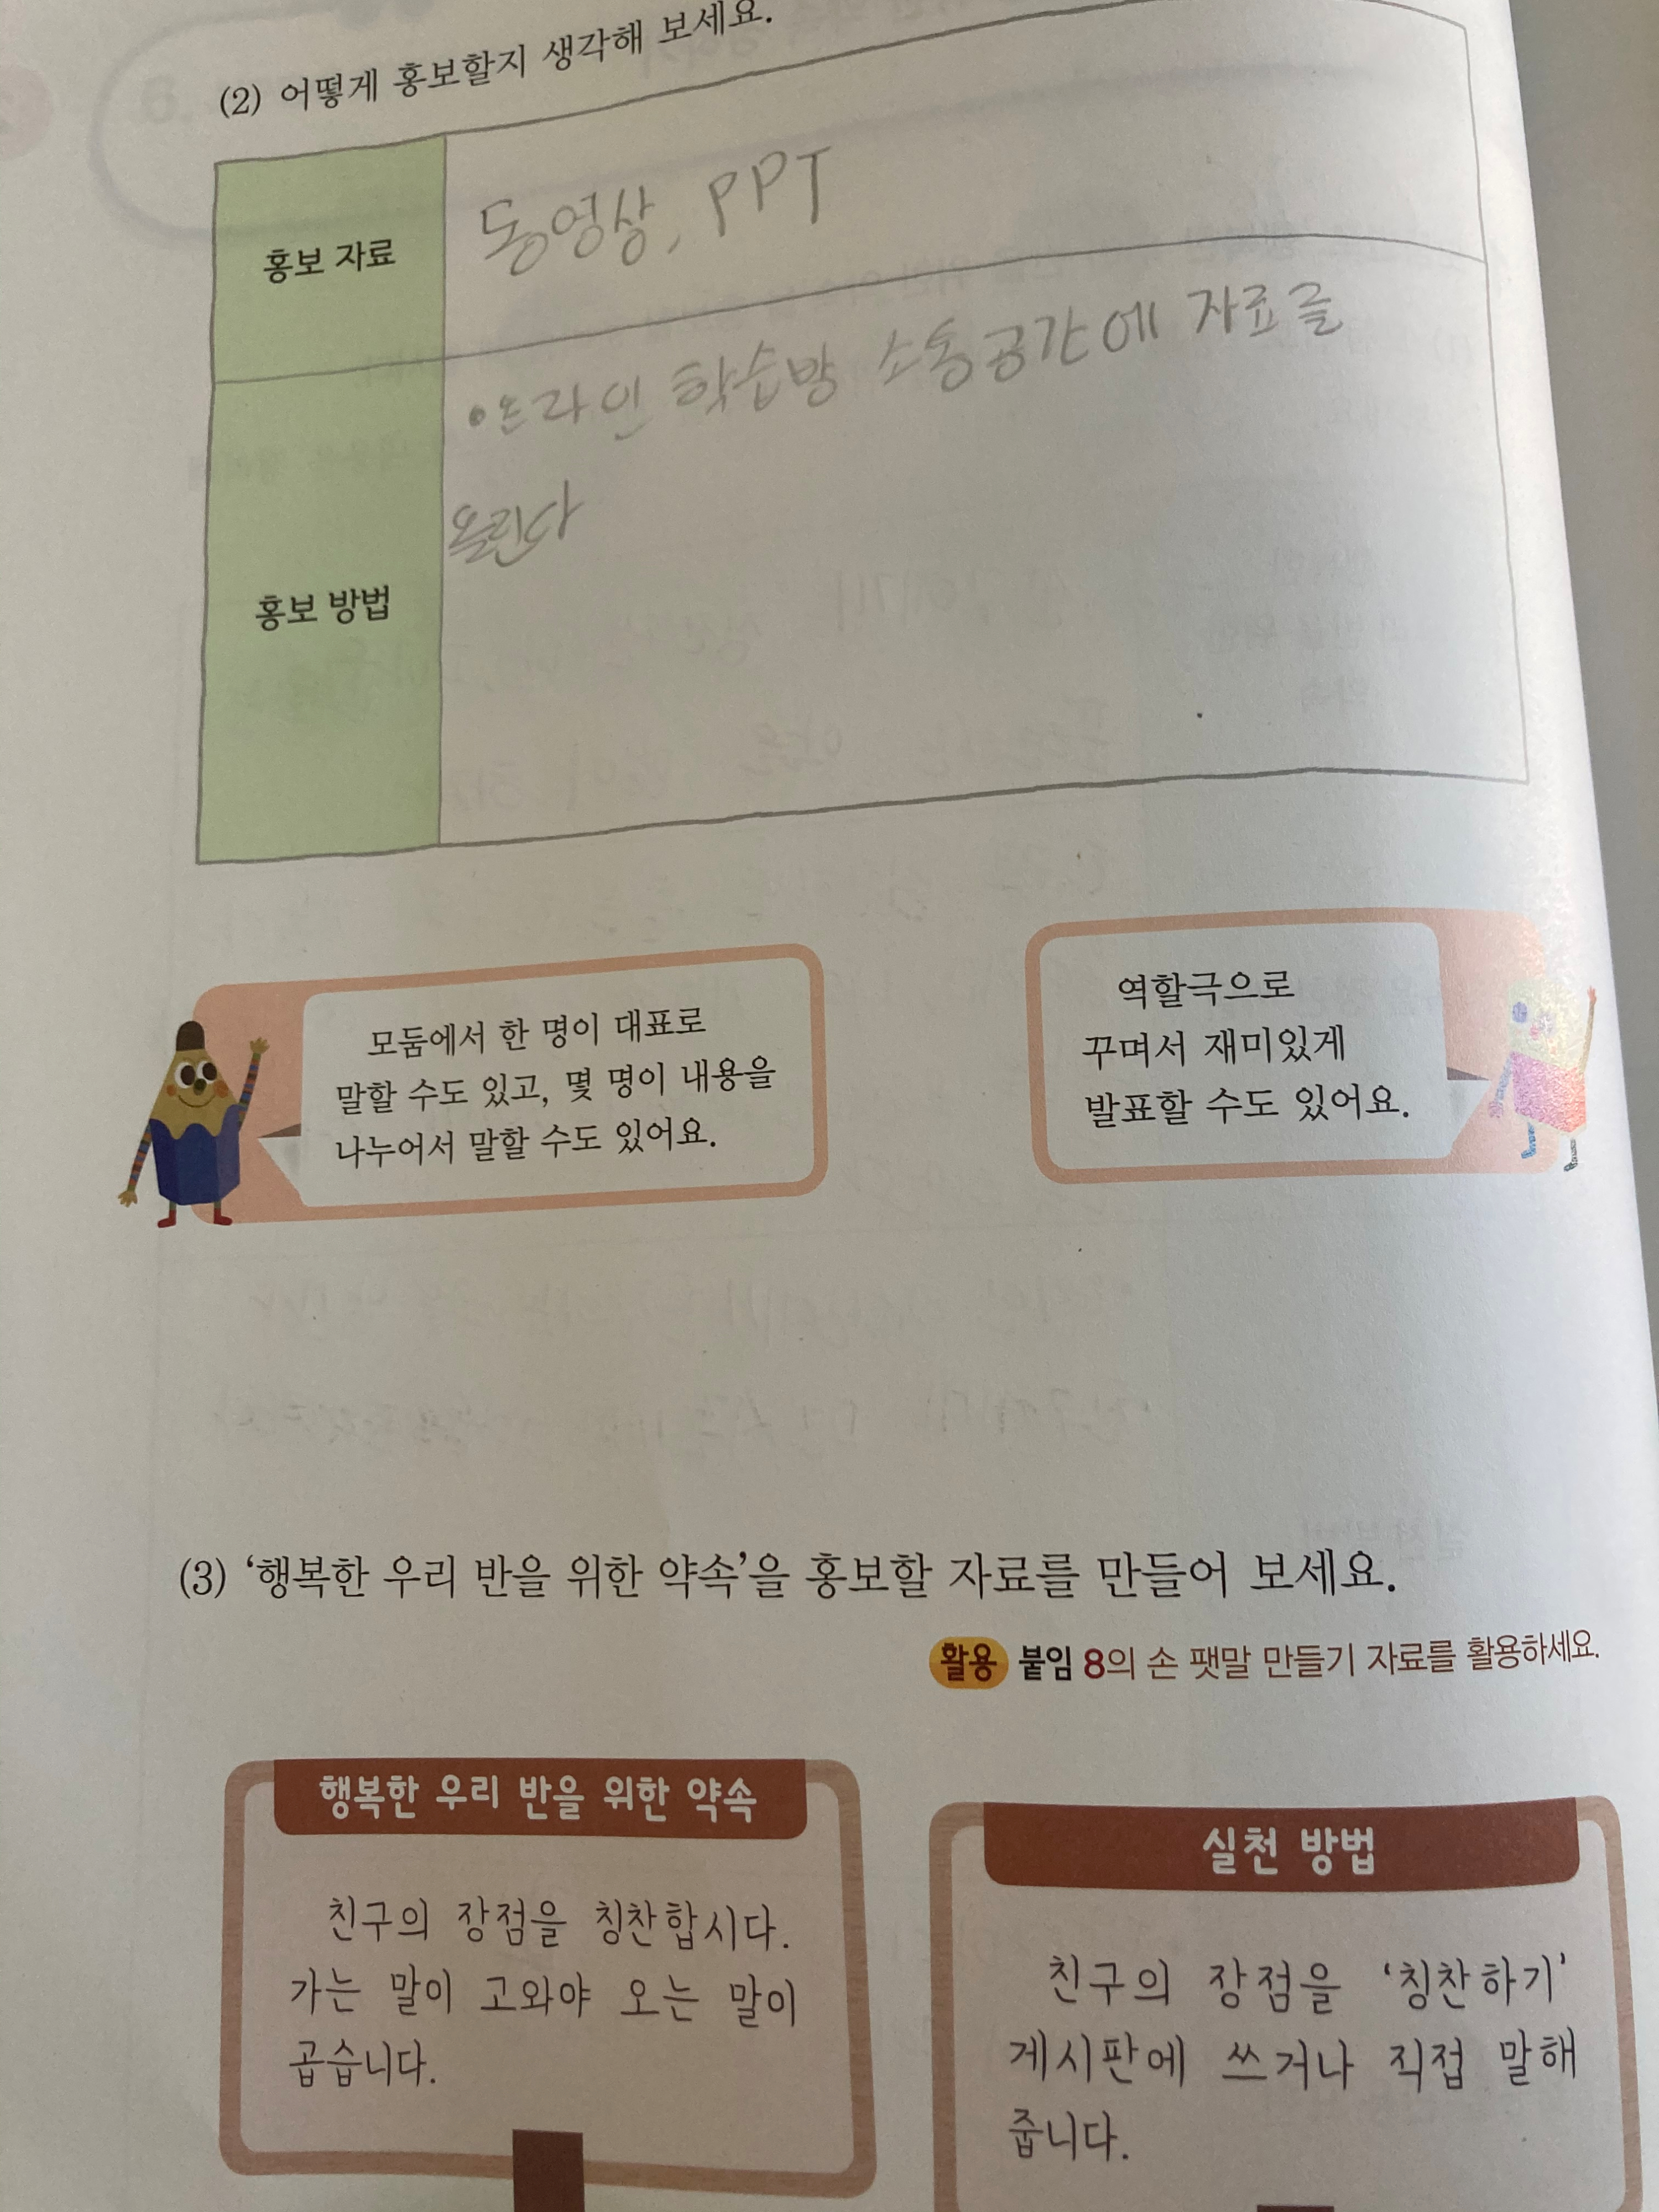 (2) 어떻게 홍보할지 생각해 보세요.
홍보 자료
동영상, PPT
홍보 방법
•온라인 학습방 소통공간에 자료를
올린다
모둠에서 한 명이 대표로
말할 수도 있고, 몇 명이 내용을
나누어서 말할 수도 있어요.
역할극으로
꾸며서 재미있게
발표할 수도 있어요.
(3) ‘행복한 우리 반을 위한 약속’을 홍보할 자료를 만들어 보세요.
활용 붙임 8의 손 팻말 만들기 자료를 활용하세요.
행복한 우리 반을 위한 약속
친구의 장점을 칭찬합시다.
가는 말이 고와야 오는 말이
곱습니다.
실천 방법
친구의 장점을 ‘칭찬하기’
게시판에 쓰거나 직접 말해
줍니다.